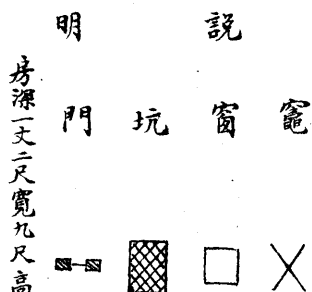 說明
竈
窗
坑
門
房深一丈二尺寬九尺高